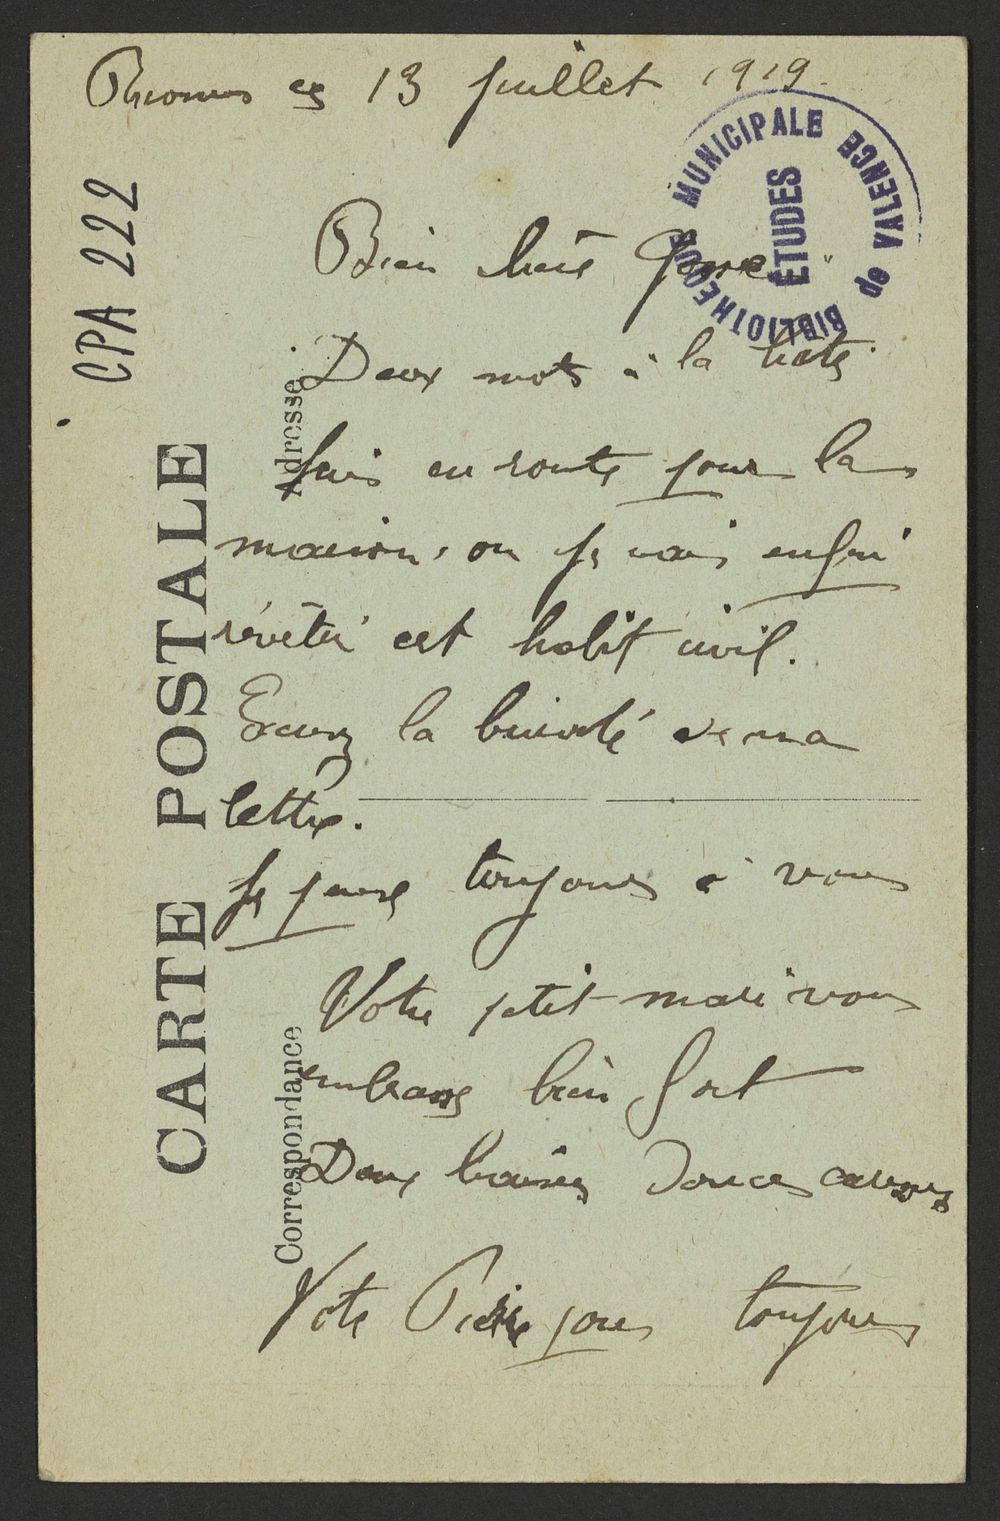 ce 13 Juillet 1919
CPA 222
BIBLIOTHEQUE MUNICIPALE de VALENCE
ETUDES
Bien chère
Deux mots à la hate
Suis en route pour la
maison, ou je vais enfin
revêtir cet habit civil.
Excusez la brièveté de ma
lettre.
Je pense toujours à vous
Votre petit mari vous
embrasse bien fort
Doux baisers Douces caresses
Votre Pierre pour toujours
CARTE POSTALE
Correspondance
Adresse